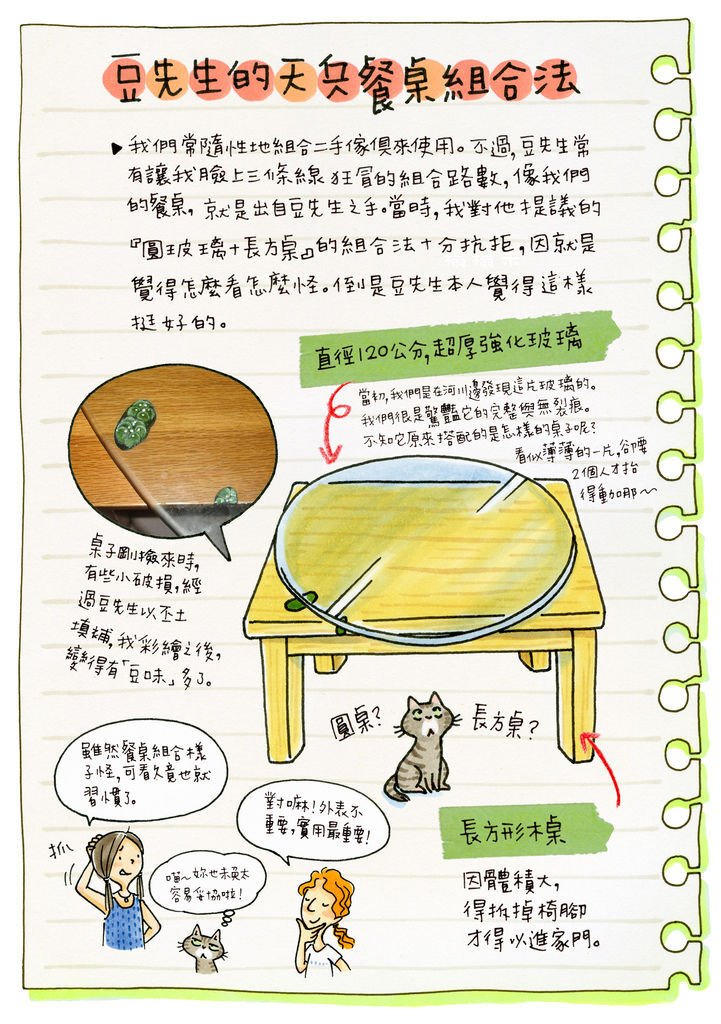 豆先生的天兵餐桌組合法
▶我們常隨性地組合二手傢俱來使用。不過,豆先生常
有讓我臉上三條線 狂冒的組合路數,像我們
的餐桌,就是出自豆先生之手。當時,我對他提議的
『圓玻璃+長方桌』的組合法十分抗拒,因就是
覺得怎麼看怎麼怪。倒是豆先生本人覺得這樣
挺好的。
直徑120公分,超厚強化玻璃
當初,我們是在河川邊發現這片玻璃的。
我們很是驚豔它的完整與無裂痕。
不知它原來搭配的是怎樣的桌子呢?
看似薄薄的一片,卻要
2個人才抬
得動加哪~
桌子剛撿來時,
有些小破損,經
過豆先生以丕土
填補,我彩繪之後,
變得有「豆味」多了。
圓桌?
長方桌?
長方形木桌
因體積大,
得拆掉椅腳
才得以進家門。
雖然餐桌組合樣
子怪,可看久竟也就
習慣了。
抓
對嘛!外表不
重要,實用最重要!
喵~妳也未免太
容易妥協啦!